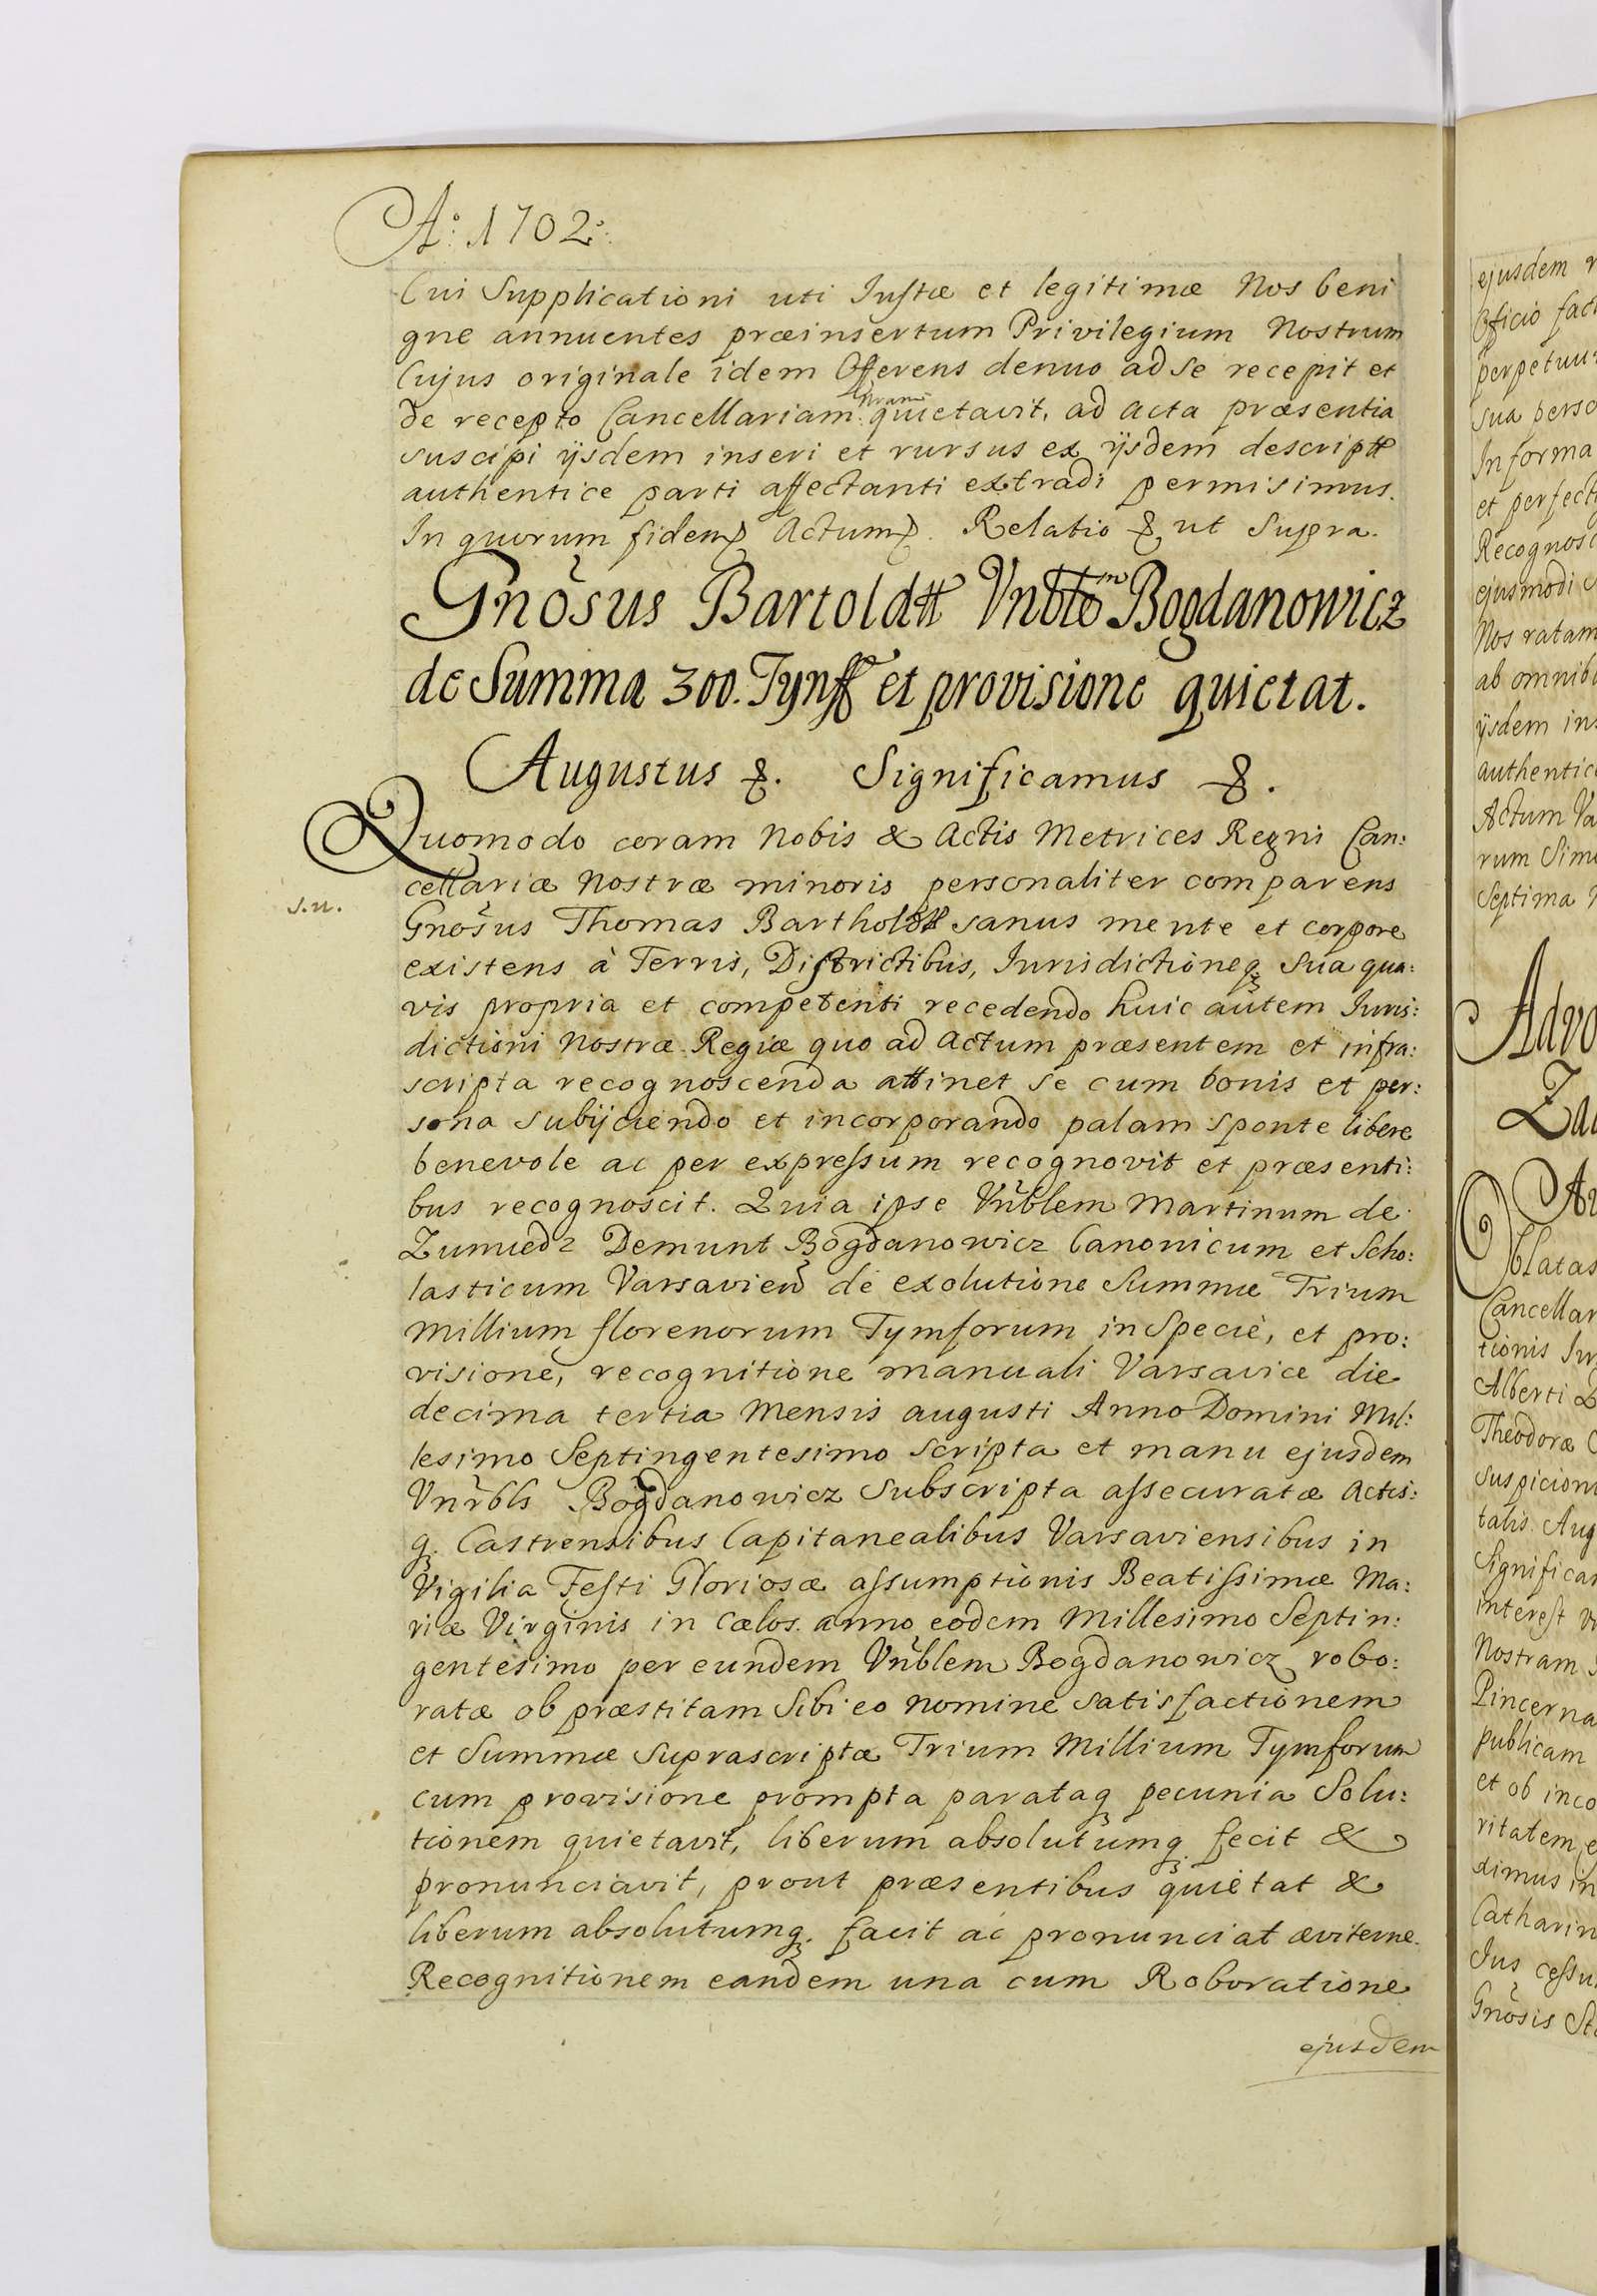 Aᵒ: 1702ᵒ:
Cui Supplicationi uti Justæ et legitimæ Nos beni
gne annuentes præinsertum Privilegium Nostrum
Cujus originale idem Offerens denuo ad se recepit et
de recepto Cancellariam nram quietavit, ad acta præsentia
suscipi ijsdem inseri et rursus ex ijsdem descript
authentice parti affectanti extradi permisimus.
In quorum fidem Actum. Relatio & ut Supra.
Gnosus Bartoldtt Vnblem Bogdanowicz
de Summa 300. Tynff et provisione quietat.
Augustus &. Significamus &.
Quomodo coram Nobis & Actis Metrices Regni Can:
cellariæ Nostræ minoris personaliter comparens
s.n.
Gnosus Thomas Bartholdtt sanus mente et corpore
existens à Terris, Districtibus, Jurisdictioneq sua qua:
vis propria et competenti recedendo huic autem Juris:
dictioni Nostræ Regiæ quo ad actum præsentem et infra:
scripta recognoscenda attinet se cum bonis et per:
sona subijciendo et incorporando palam sponte libere
benevole ac per expressum recognovit et præsenti:
bus recognoscit. Quia ipse Vnblem Martinum de
Zumiedz Demunt Bogdanowicz Canonicum et Scho:
lasticum Varsavien de exolutione Summæ Trium
Millium florenorum Tymforum in Specie, et pro:
visione, recognitione manuali Varsaviæ die
decima tertia Mensis augusti Anno Domini Mil:
lesimo Septingentesimo scripta et manu ejusdem
Vnrbls Bogdanowicz Subscripta assecuratæ Actis:
q. Castrensibus Capitanealibus Varsaviensibus in
Vigilia Festi Gloriosæ assumptionis Beatissimæ Ma:
riæ Virginis in Cælos. anno eodem Millesimo Septin:
gentesimo per eundem Vnblem Bogdanowicz robo:
ratæ ob præstitam Sibi eo nomine satisfactionem
et Summæ Suprascriptæ Trium Millium Tymforum
cum provisione prompta parataq pecunia Solu:
tionem quietavit, liberum absolutumq. fecit &
pronunciavit, prout præsentibus quietat &
liberum absolutumq. facit ac pronunciat æviterne.
Recognitionem eandem una cum Roboratione
ejusdem
ejusdem
Officio fact
perpetuu
sua perso
In forma
et perfect
Recognosc
ejusmodi
Nos ratam
ab omnib
ijsdem ins
authentic
Actum Va
rum Sim
Septima
Advo
Zal
Au
Oblatas
Cancellar
tionis Ju
Alberti
Theodoræ
suspicion
talis. Aug
Significa
interest
Nostram
Pincerna
publicam
et ob inco
ritatem
ximus in
Catharin
Jus cessu
Gnosis St